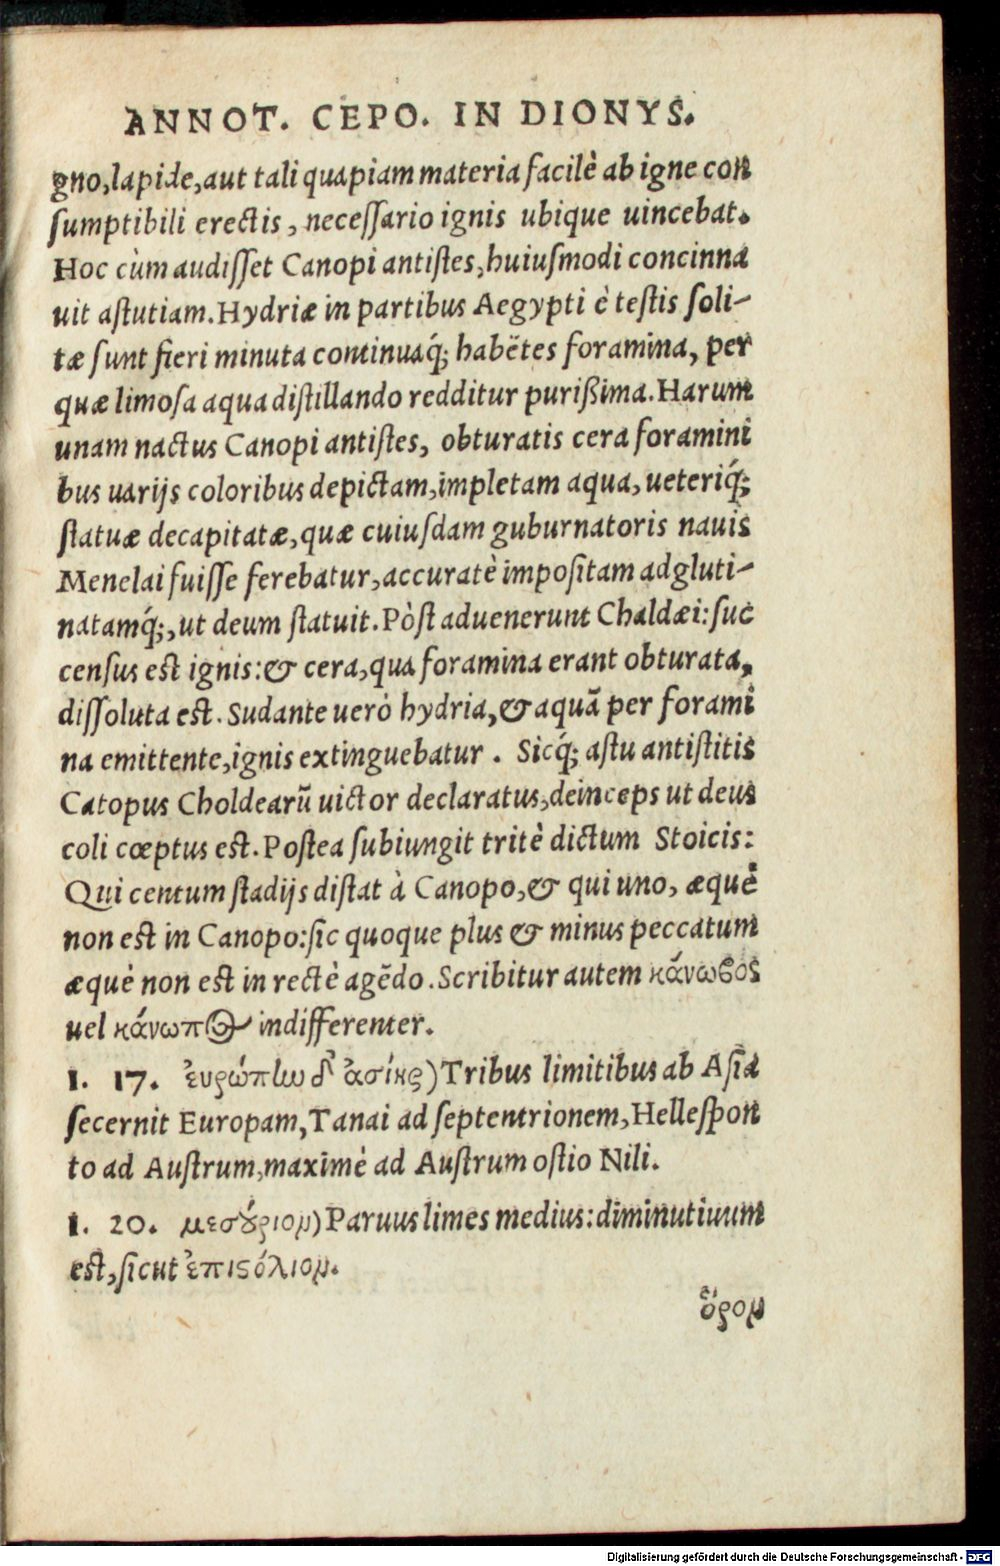 ANNOT. CEPO. IN DIONYS.
gno, lapide, aut tali quapiam materia facilè ab igne con
sumptibili erectis, necessario ignis ubique uincebat.
Hoc cùm audisset Canopi antistes, huiusmodi concinna
uit astutiam. Hydriæ in partibus Aegypti è testis soli-
tæ sunt fieri minuta continuaq́; habẽtes foramina, per
quæ limosa aqua distillando redditur purißima. Harum
unam nactus Canopi antistes, obturatis cera foramini
bus uarijs coloribus depictam, impletam aqua, ueteriq́;
statuæ decapitatæ, quæ cuiusdam guburnatoris nauis
Menelai fuisse ferebatur, accuratè impositam adgluti-
natamq́;, ut deum statuit. Pòst aduenerunt Chaldæi: suc
census est ignis: & cera, qua foramina erant obturata,
dissoluta est. Sudante uerò hydria, & aquã per forami
na emittente, ignis extinguebatur. Sicq́; astu antistitis
Catopus Choldearũ uictor declaratus, deinceps ut deus
coli cœptus est. Postea subiungit tritè dictum Stoicis:
Qui centum stadijs distat à Canopo, & qui uno, æquè
non est in Canopo: sic quoque plus & minus peccatum
æquè non est in rectè agẽdo. Scribitur autem κάνωβος
uel κάνωπος indifferenter.
1. 17. ἐυρώπην δ᾽ ἀσίης) Tribus limitibus ab Asia
secernit Europam, Tanai ad septentrionem, Hellespon
to ad Austrum, maximè ad Austrum ostio Nili.
1. 20. μεσούριον) Paruus limes medius: diminutiuum
est, sicut ἐπιστόλιον.
ὅρον
Digitalisierung gefördert durch die Deutsche Forschungsgemeinschaft - DFG